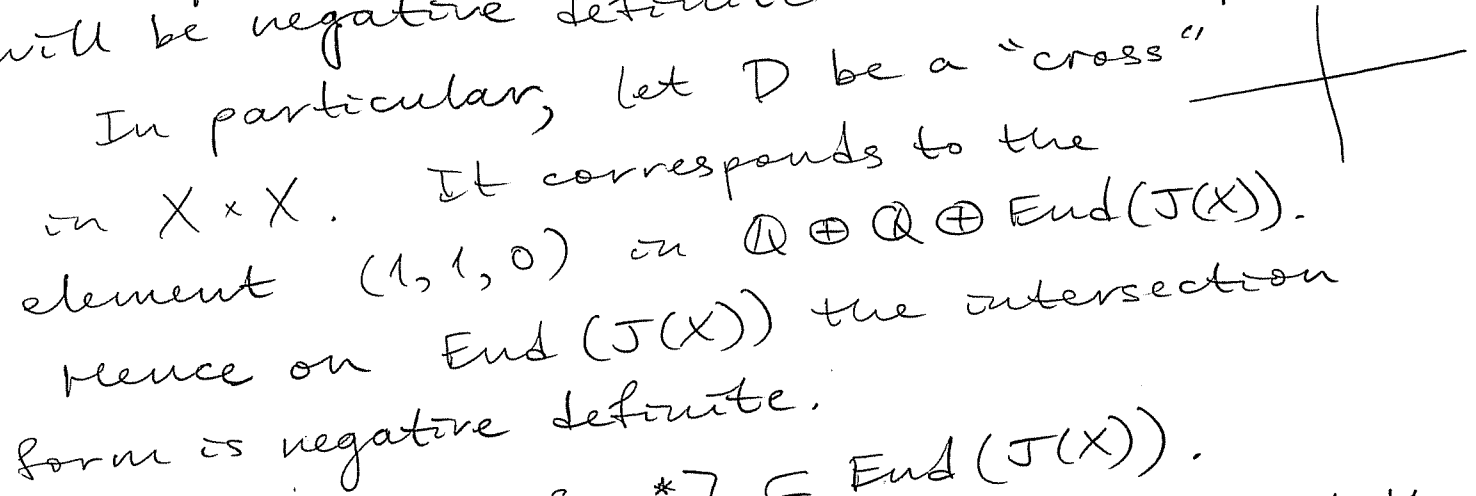 will be negative definite
In particular, let D be a "cross"
in X × X. It corresponds to the
element (1, 1, 0) in ℚ ⊕ ℚ ⊕ End(J(X)).
Hence on End (J(X)) the intersection
form is negative definite.
*] ∈ End (J(X)).